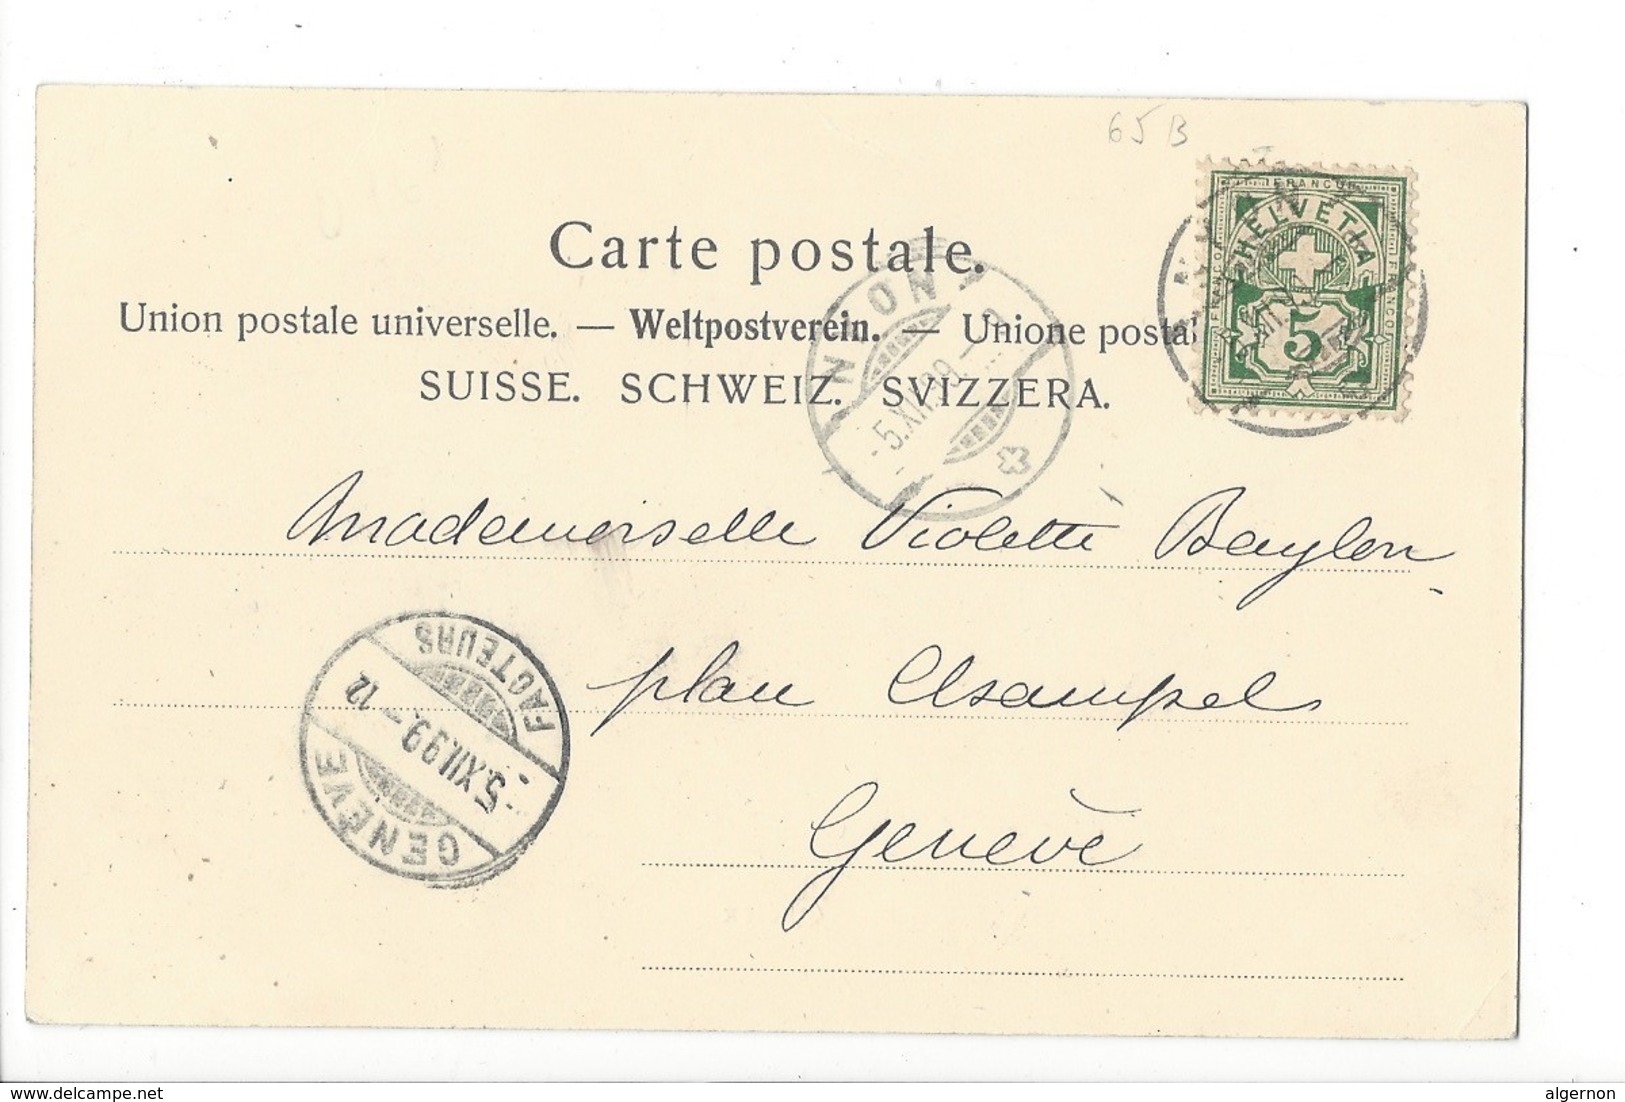 65 B
FRANCO
HELVETIA
FRANCO
FRANCO
5
Carte postale.
Union postale universelle. — Weltpostverein. — Unione postal
SUISSE. SCHWEIZ. SVIZZERA.
NYON
-5.XII.99.-
Mademoiselle Violette Baylon
plan Champel
Genève
GENÈVE
-5.XII.99.-12
FACTEURS
algernon